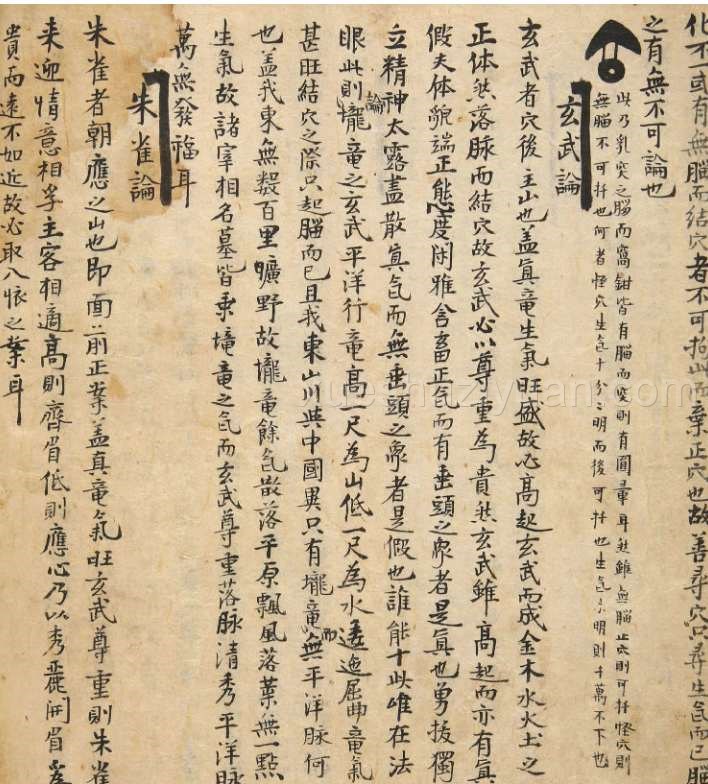 化不一或有無腦而結穴者不可拘此而棄正穴也故善尋穴只尋生气而已腦
之有無不可論也
此乃乳突之腦而窩鉗皆有腦而突則有圓暈耳然雖無腦止穴則可扦怪穴則
無腦不可扦也何者怪穴生气十分分明而後可扦也生气不明則千萬不下也
玄武論
玄武者穴後主山也盖眞竜生氣旺盛故必高起玄武而成金木水火土之
正体然落脉而結穴故玄武必以尊重為貴然玄武雖高起而亦有真
假夫体貌端正態度閑雅含畜正气而有垂頭之象者是眞也勇拔獨
立精神太露盖散眞气而無垂頭之象者是假也誰能十此唯在法
眼此則論壠竜之玄武平洋行竜高一尺為山低一尺為水逶迤屈曲竜氣
甚旺結穴之際只起腦而已且我東山川與中國異只有壠竜而無平洋脉何
也盖我東無数百里曠野故壠竜餘气散落平原飄風落葉無一點
生氣故諸宰相名墓皆乘壠竜之气而玄武尊重落脉清秀平洋脉
萬無發福耳
朱雀論
朱雀者朝應之山也即面前正案盖真竜氣旺玄武尊重則朱雀
来迎情意相孚主客相適高則齊眉低則應心乃以秀麗開眉為
貴而遠不如近故必取入懐之案耳